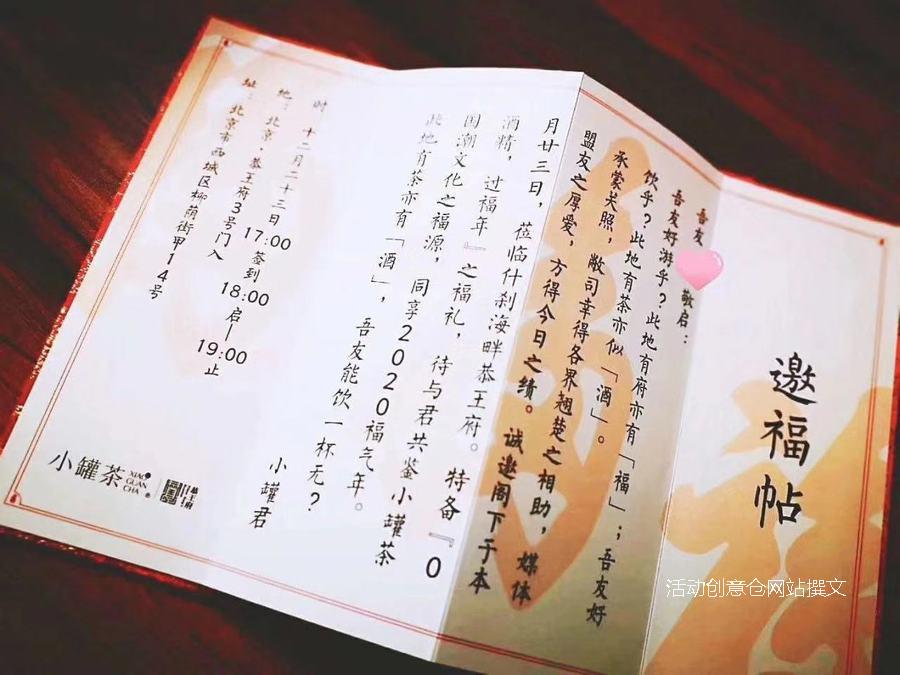 邀福帖
吾友 敬启：
吾友好游乎？此地有府亦有「福」；吾友好
饮乎？此地有茶亦似「酒」。
承蒙关照，敝司幸得各界翘楚之相助，媒体
盟友之厚爱，方得今日之绩。诚邀阁下于本
月廿三日，莅临什刹海畔恭王府。特备『0
酒精，过福年』之福礼，待与君共鉴小罐茶
国潮文化之福源，同享2020福气年。
此地有茶亦有「酒」，吾友能饮一杯无？
小罐君
时 十二月二十三日 17:00 签到 18:00 启—19:00 止
地：北京·恭王府3号门入
址：北京市西城区柳荫街甲14号
小罐茶
XIAO
GUAN
CHA
恭王府
活动创意仓网站撰文